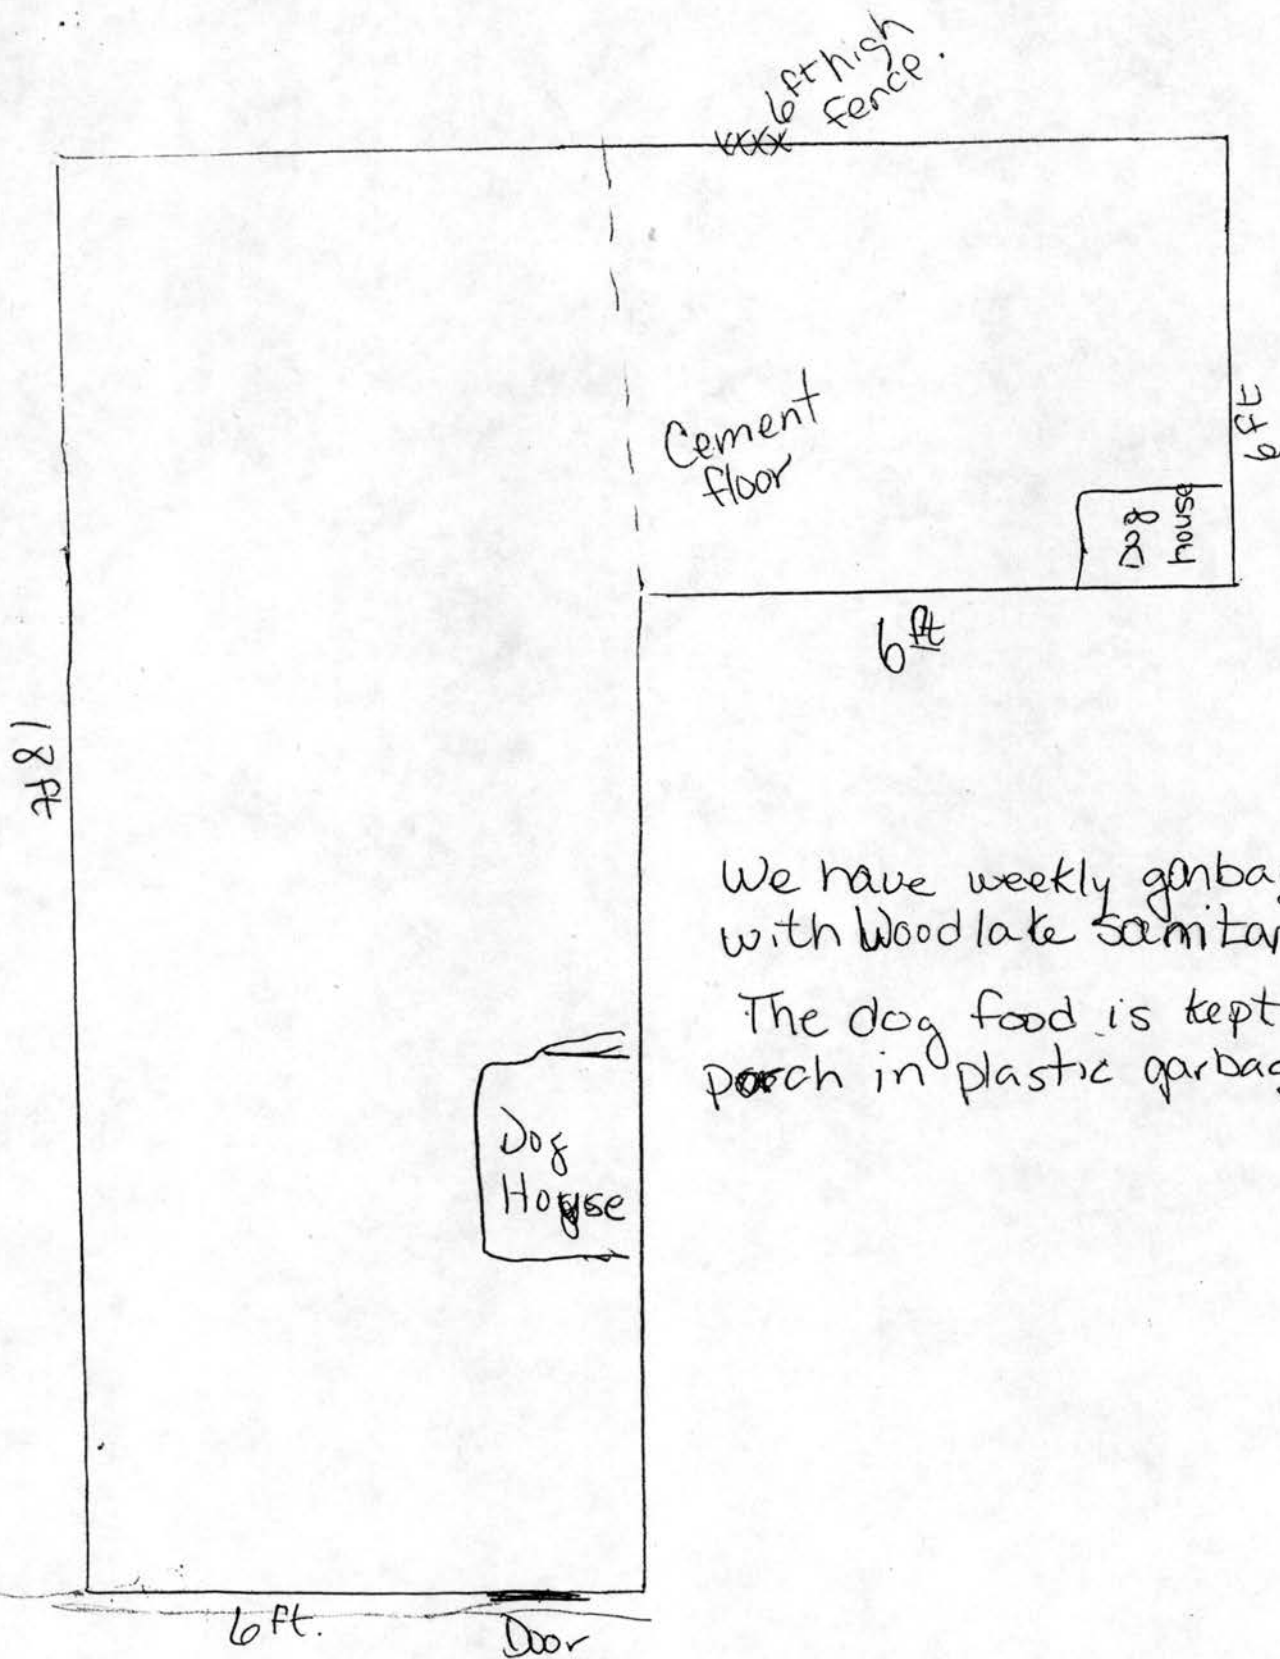 6ft high
fence.
xxxx
Cement
floor
6ft
Dog
house
6ft
18 ft
We have weekly
with Woodlake
The dog food is kept
porch in plastic
Dog
House
6 ft.
Door